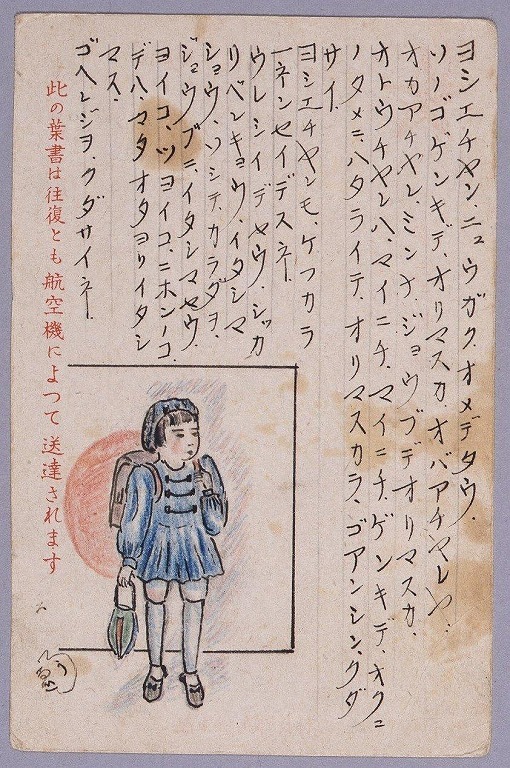 ヨシエチヤンニュウガク.オメデタウ.
ソノゴ.ゲンキデ.オリマスカ.オバアチヤン.
オカアチヤン.ミンナ.ジョウブデオリマスカ.
オトウチヤンハ.マイニチ.マイニチ.ゲンキデ.オクニ
ノタメニ.ハタライテ.オリマスカラ.ゴアンシン.クダ
サイ.
ヨシエチヤンモ.ケフカラ
一ネンセイデスネー.
ウレシイデセウ.シッカ
リベンキョウ.イタシマ
ショウ.ソシテ.カラダヲ.
ジョウブニ.イタシマセウ.
ヨイコ.ツヨイコ.ニホンノコ.
デハマタオタヨリイタシ
マス.
ゴヘンジヲ.クダサイネー.
此の葉書は往復とも航空機によつて送達されます